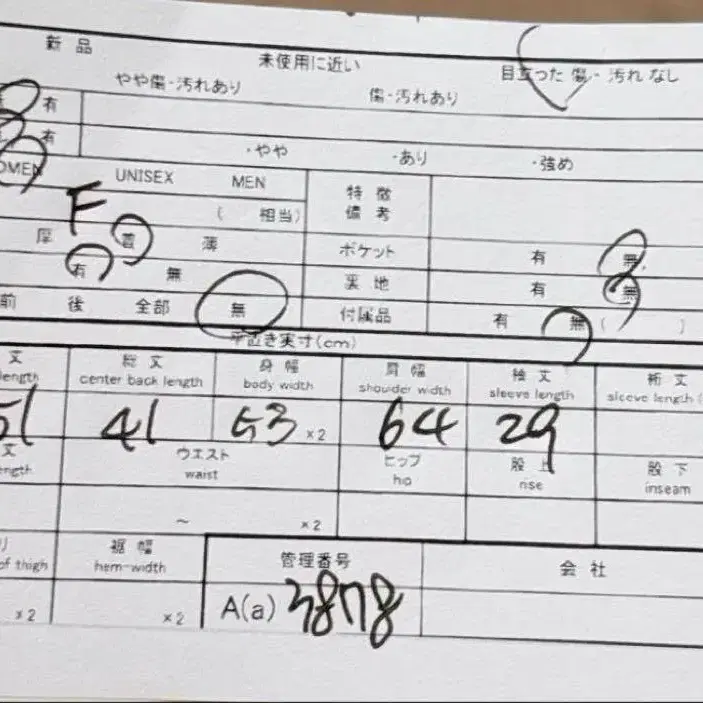 新品 未使用に近い 目立った傷・汚れなし
やや傷・汚れあり 傷・汚れあり
有
有 ・やや ・あり ・強め
UNISEX MEN 特徴
備考
F ( 相当)
厚 普 薄 ポケット 有 無
有 無 裏地 有 無
前 後 全部 無 付属品 有 無 ( )
平置き実寸(cm)
丈 総丈 身幅 肩幅 袖丈 裄丈
length center back length body width shoulder width sleeve length sleeve length (
51 41 53 ×2 64 29
丈 ウエスト ヒップ 股上 股下
length waist hip rise inseam
~ ×2
裾幅 管理番号 会社
of thigh hem-width
×2 ×2 A(a) 3878